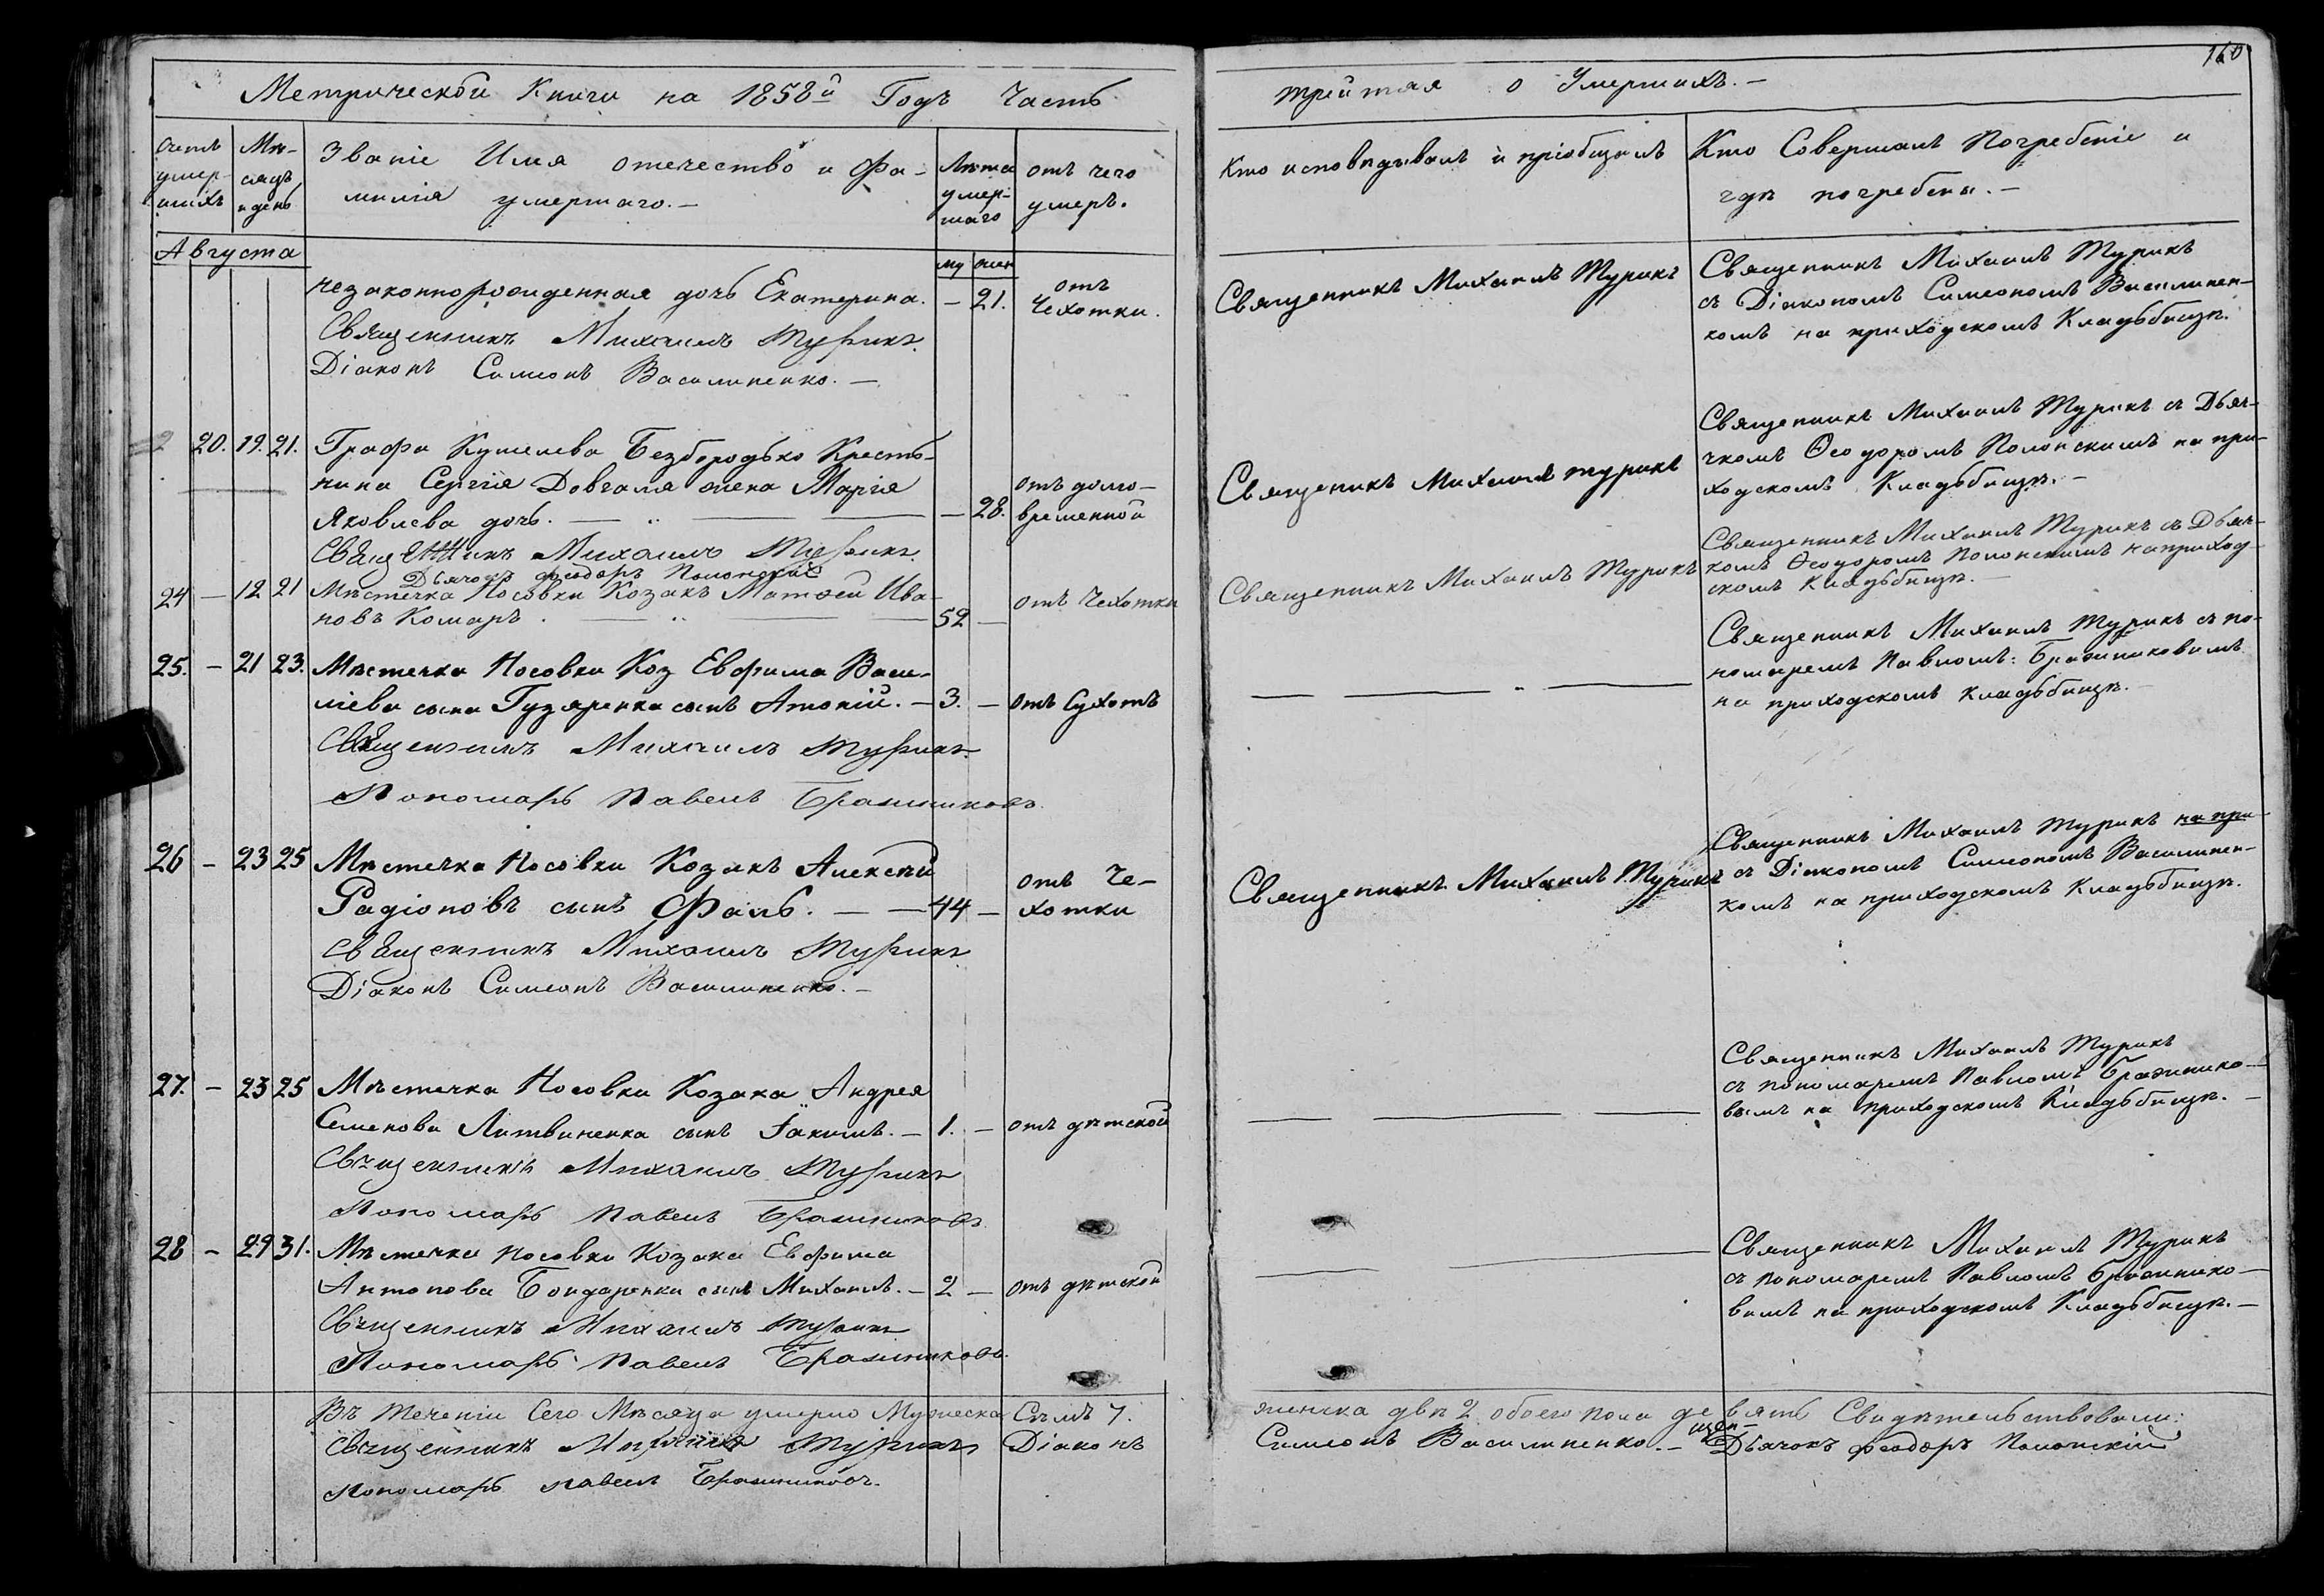 160
Метрической Книги на 1858й Годъ Часть
третая о Умершихъ.—
счетъ умер- шихъ
Мѣ- сяцъ и день
Званіе Имя отечество и Фа-
милія умершаго.—
Лѣта умер- шаго
отъ чего умеръ.
Кто исповѣдывалъ и пріобщалъ
Кто Совершалъ Погребеніе и
гдѣ погребены.—
Августа
му жен
незаконнорожденная дочь Екатерина. — 21. отъ
Чехотки.
Священникъ Михаилъ Турикъ
Діаконъ Симеонъ Василиненко.—
Священникъ Михаилъ Турикъ
Священникъ Михаилъ Турикъ
съ Діакономъ Симеономъ Василинен-
комъ на приходскомъ Кладьбищѣ.
20. 19. 21. Графа Кушелева Безбородько Крестья-
нина Сергія Довгаля жена Марія
Яковлева дочь. — 28.
отъ долго-
временной
Священникъ Михаилъ Турикъ
Дьячокъ Феодоръ Полонскій
Священникъ Михаилъ Турикъ
Священникъ Михаилъ Турикъ съ Дьяч-
чкомъ Ѳеодоромъ Полонскимъ на при-
ходскомъ Кладьбищѣ.—
24 — 12 21 Мѣстечка Носовки Козакъ Матѳей Ива-
новъ Комаръ. — 52 — отъ Чехотки
Священникъ Михаилъ Турикъ
Священникъ Михаилъ Турикъ съ Дьяч-
комъ Ѳеодоромъ Полонскимъ на приход-
скомъ Кладьбищѣ.—
25. — 21 23. Мѣстечка Носовки Коз Евфима Васи-
лієва сына Гузяренка сынъ Антоній. — 3. — отъ Сухотъ
Священникъ Михаилъ Турикъ
Пономарь Павелъ Бражниковъ
Священникъ Михаилъ Турикъ съ по-
номаремъ Павломъ Бражниковымъ
на приходскомъ кладьбищѣ.
26 — 23 25 Мѣстечка Носовки Козакъ Алексѣй
Радіоновъ сынъ Фаль. — 44 —
отъ Че-
хотки
Священникъ Михаилъ Турикъ
Діаконъ Симеонъ Василиненко.—
Священникъ Михаилъ Турикъ
Священникъ Михаилъ Турикъ на при-
съ Діакономъ Симеономъ Василинен-
комъ на приходскомъ Кладьбищѣ.
27. — 23 25 Мѣстечка Носовки Козака Андрея
Семенова Литвиненка сынъ Іакимъ. — 1. — отъ дѣтской
Священникъ Михаилъ Турикъ
Пономарь Павелъ Бражниковъ
Священникъ Михаилъ Турикъ
съ пономаремъ Павломъ Бражнико-
вымъ на приходскомъ Кладьбищѣ.—
28 — 29 31. Мѣстечка Носовки Козака Евфима
Антонова Бондаренка сынъ Михаилъ. — 2 — отъ дѣтской
Священникъ Михаилъ Турикъ
Пономарь Павелъ Бражниковъ.
Священникъ Михаилъ Турикъ
съ пономаремъ Павломъ Бражнико-
вымъ на приходскомъ Кладьбищѣ.—
Въ теченіи Сего Мѣсяца умерло Мужеска Семъ 7. женска двѣ 2 обоего пола девять Свидѣтельствовали:
Священникъ Михаилъ Турикъ Діаконъ Симеонъ Василиненко.— Дьячокъ Феодоръ Полонскій
Пономарь Павелъ Бражниковъ.